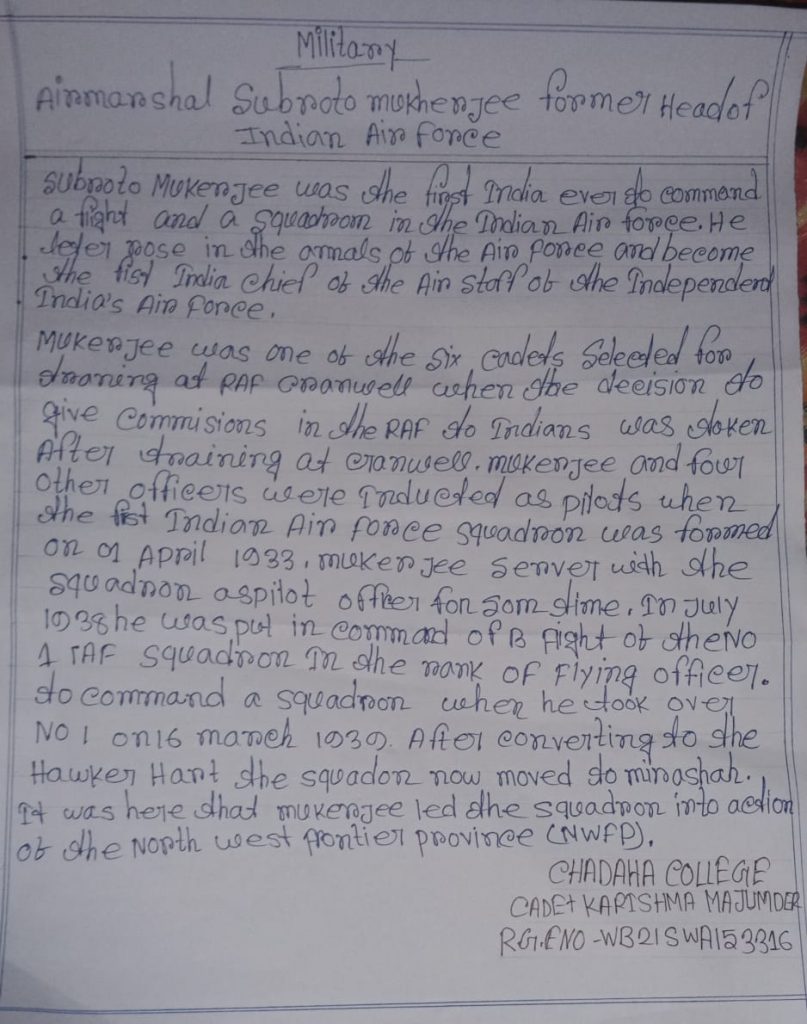 Military
Airmarshal Subroto mukherjee former Head of
Indian Air force
Subroto Mukerjee was the first India ever to command
a fight and a squadroom in the Indian Air force. He
leter rose in the annals of the Air force and become
the fist India chief of the Air staff of the Independend
India's Air force.
Mukerjee was one of the six cadets Seleeted for
traning at RAF cranwell when the decision to
give commisions in the RAF to Indians was token
After training at cranwell. mukerjee and four
other officers were Inducted as pilots when
the fist Indian Air force squadron was formed
on 01 April 1933. mukerjee server with the
squadron aspilot officer for som time. In July
1938 he was put in commad of B fight of the No
1 IAF squadron In the rank of Flying officer.
to command a squadron when he took over
No 1 on 16 march 1939. After converting to the
Hawker Hart the squadon now moved to mirashah.
It was here that mukerjee led the squadron into action
of the North west frontier province (NWFP).
CHADAHA COLLEGE
CADET KARISHMA MAJUMDER
RG.ENO - WB21SWA153316